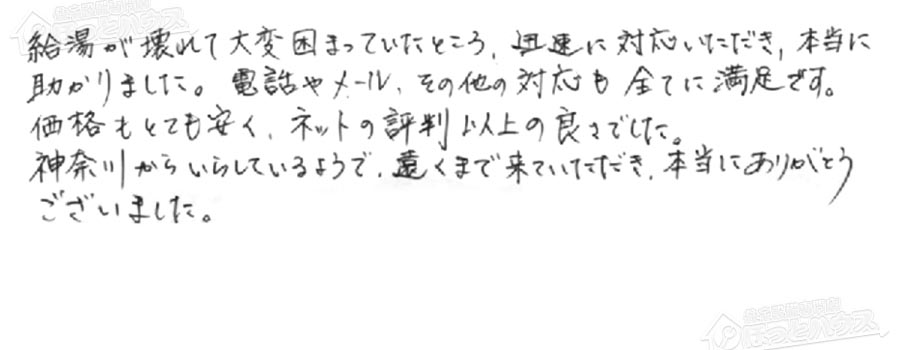 給湯が壊れて大変困まっていたところ、迅速に対応いただき、本当に
助かりました。電話やメール、その他の対応も全てに満足です。
価格もとても安く、ネットの評判以上の良さでした。
神奈川からいらしているようで、遠くまで来ていただき、本当にありがとう
ございました。
ほっとハウス